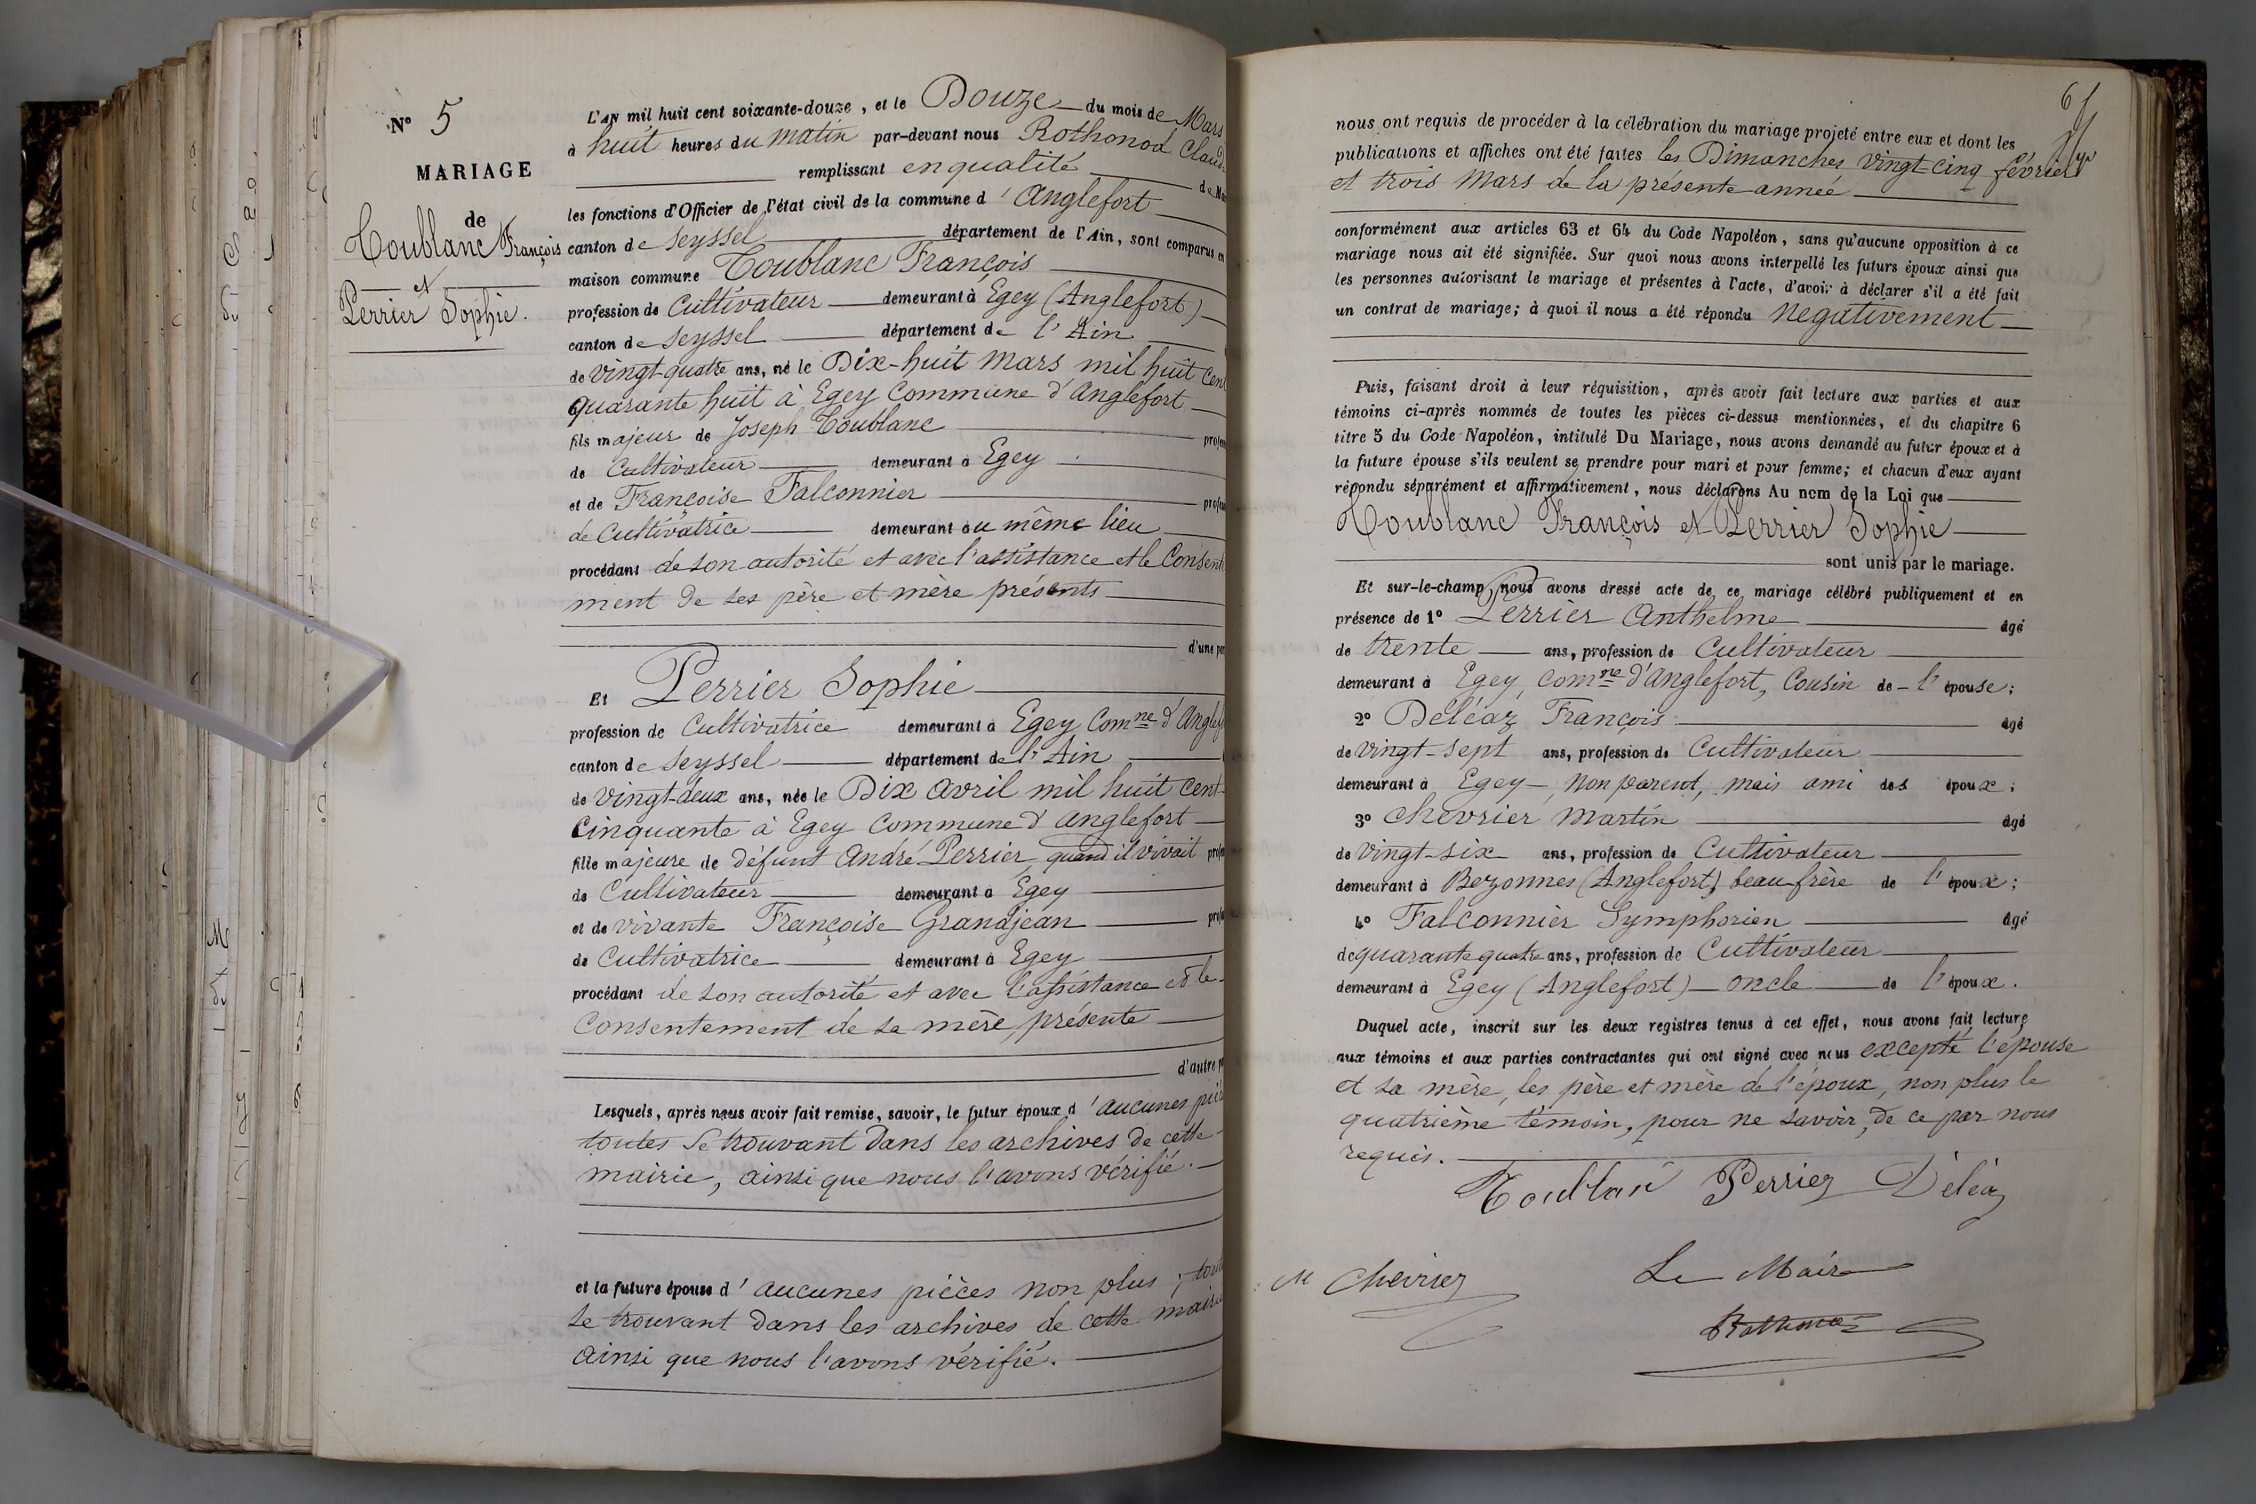 N° 5
MARIAGE
de
Toublanc François
et
Perrier Sophie.
L'AN mil huit cent soixante-douze, et le Douze du mois de Mars
à huit heures du matin par-devant nous Rothonod Claude
remplissant en qualité de
les fonctions d'Officier de l'état civil de la commune d'Anglefort
canton de Seyssel département de l'Ain, sont comparus en
maison commune Toublanc François
profession de Cultivateur demeurant à Egey (Anglefort)
canton de Seyssel département de l'Ain
de vingt-quatre ans, né le Dix-huit Mars mil huit cent
quarante huit à Egey Commune d'Anglefort
fils majeur de Joseph Toublanc
de Cultivateur demeurant à Egey
et de Françoise Falconnier
de Cultivatrice demeurant au même lieu
procédant de son autorité et avec l'assistance et le Consente
ment de ses père et mère présents
d'une
Et Perrier Sophie
profession de Cultivatrice demeurant à Egey Comne d'Anglef
canton de Seyssel département de l'Ain
de vingt-deux ans, née le Dix avril mil huit cent
cinquante à Egey Commune d'Anglefort
fille majeure de défunt André Perrier, quand il vivait
de Cultivateur demeurant à Egey
et de vivante Françoise Grandjean
de Cultivatrice demeurant à Egey
procédant de son autorité et avec l'assistance et le
Consentement de sa mère, présente
d'autre
Lesquels, après nous avoir fait remise, savoir, le futur époux d'aucunes
toutes se trouvant Dans les archives de cette
mairie, ainsi que nous l'avons vérifié.
et la future épouse d'aucunes pièces non plus;
se trouvant Dans les archives de cette mairie
ainsi que nous l'avons vérifié.
nous ont requis de procéder à la célébration du mariage projeté entre eux et dont les
publications et affiches ont été faites les Dimanches vingt-cinq février
et trois Mars de la présente année
conformément aux articles 63 et 64 du Code Napoléon, sans qu'aucune opposition à ce
mariage nous ait été signifiée. Sur quoi nous avons interpellé les futurs époux ainsi que
les personnes autorisant le mariage et présentes à l'acte, d'avoir à déclarer s'il a été fait
un contrat de mariage; à quoi il nous a été répondu Négativement
Puis, faisant droit à leur réquisition, après avoir fait lecture aux parties et aux
témoins ci-après nommés de toutes les pièces ci-dessus mentionnées, et du chapitre 6
titre 5 du Code Napoléon, intitulé Du Mariage, nous avons demandé au futur époux et à
la future épouse s'ils veulent se prendre pour mari et pour femme; et chacun d'eux ayant
répondu séparément et affirmativement, nous déclarons Au nom de la Loi que
Toublanc François et Perrier Sophie
sont unis par le mariage.
Et sur-le-champ nous avons dressé acte de ce mariage célébré publiquement et en
présence de 1° Perrier Anthelme âgé
de trente ans, profession de Cultivateur
demeurant à Egey, comne d'Anglefort, Cousin de l'épouse;
2° Deléaz François âgé
de vingt-sept ans, profession de Cultivateur
demeurant à Egey, non parent, mais ami des époux;
3° Chevrier Martin âgé
de vingt-six ans, profession de Cultivateur
demeurant à Bezonnes (Anglefort) beau-frère de l'époux;
4° Falconnier Symphorien âgé
de quarante quatre ans, profession de Cultivateur
demeurant à Egey (Anglefort) oncle de l'époux.
Duquel acte, inscrit sur les deux registres tenus à cet effet, nous avons fait lecture
aux témoins et aux parties contractantes qui ont signé avec nous excepté l'épouse
et sa mère, les père et mère de l'époux, non plus le
quatrième témoin, pour ne savoir, de ce par nous
requis.
Toublanc Perrier Déléaz
M Chevrier Le Maire
Rothonod